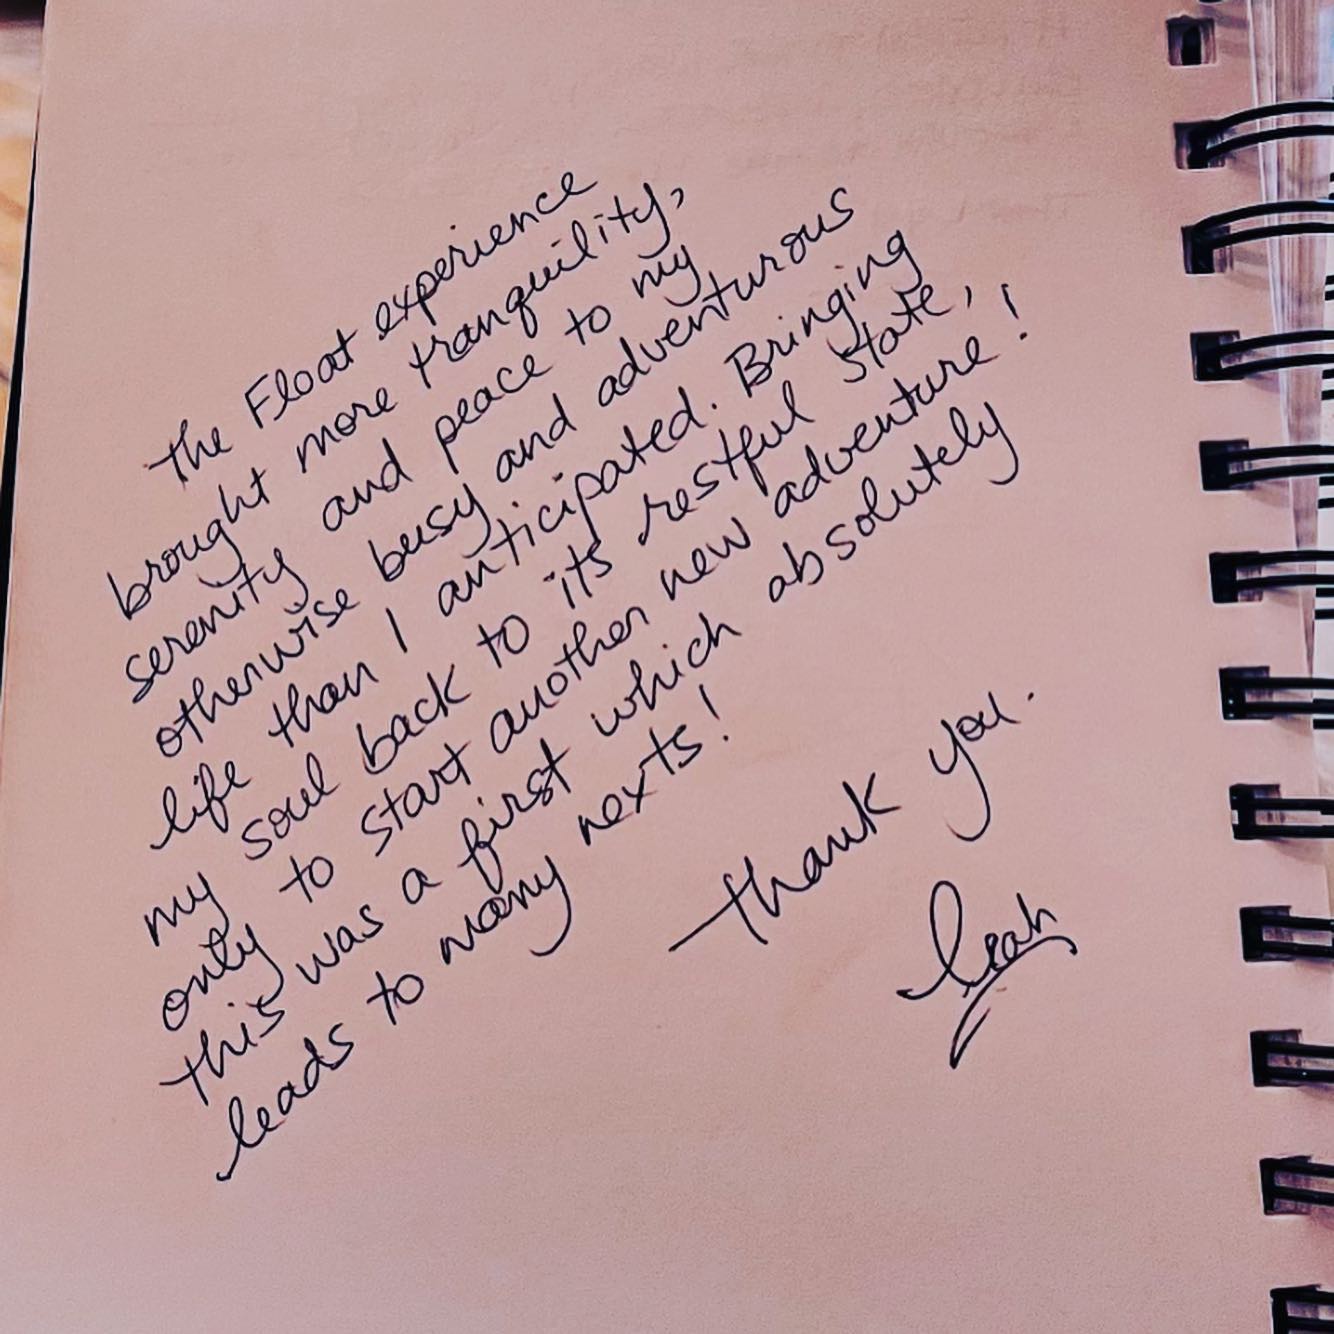 the Float experience
brought more tranquility,
serenity and peace to my
otherwise busy and adventurous
life than I anticipated. Bringing
my soul back to its restful state,
only to start another new adventure!
this was a first which absolutely
leads to many nexts!
thank you.
Leah